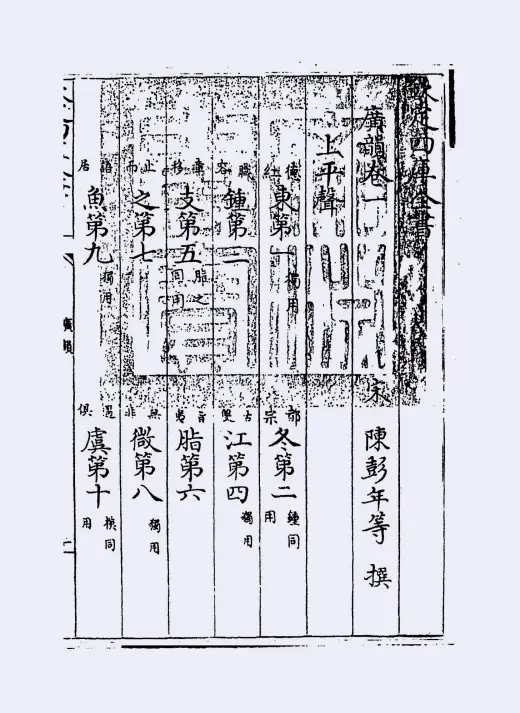 欽定四庫全書
廣韻卷一
宋 陳彭年等 撰
上平聲
德紅 東第一 獨用
都宗 冬第二 鍾同用
職容 鍾第三
古雙 江第四 獨用
章移 支第五 脂之同用
旨夷 脂第六
止而 之第七
無非 微第八 獨用
語居 魚第九 獨用
遇俱 虞第十 模同用
廣韻